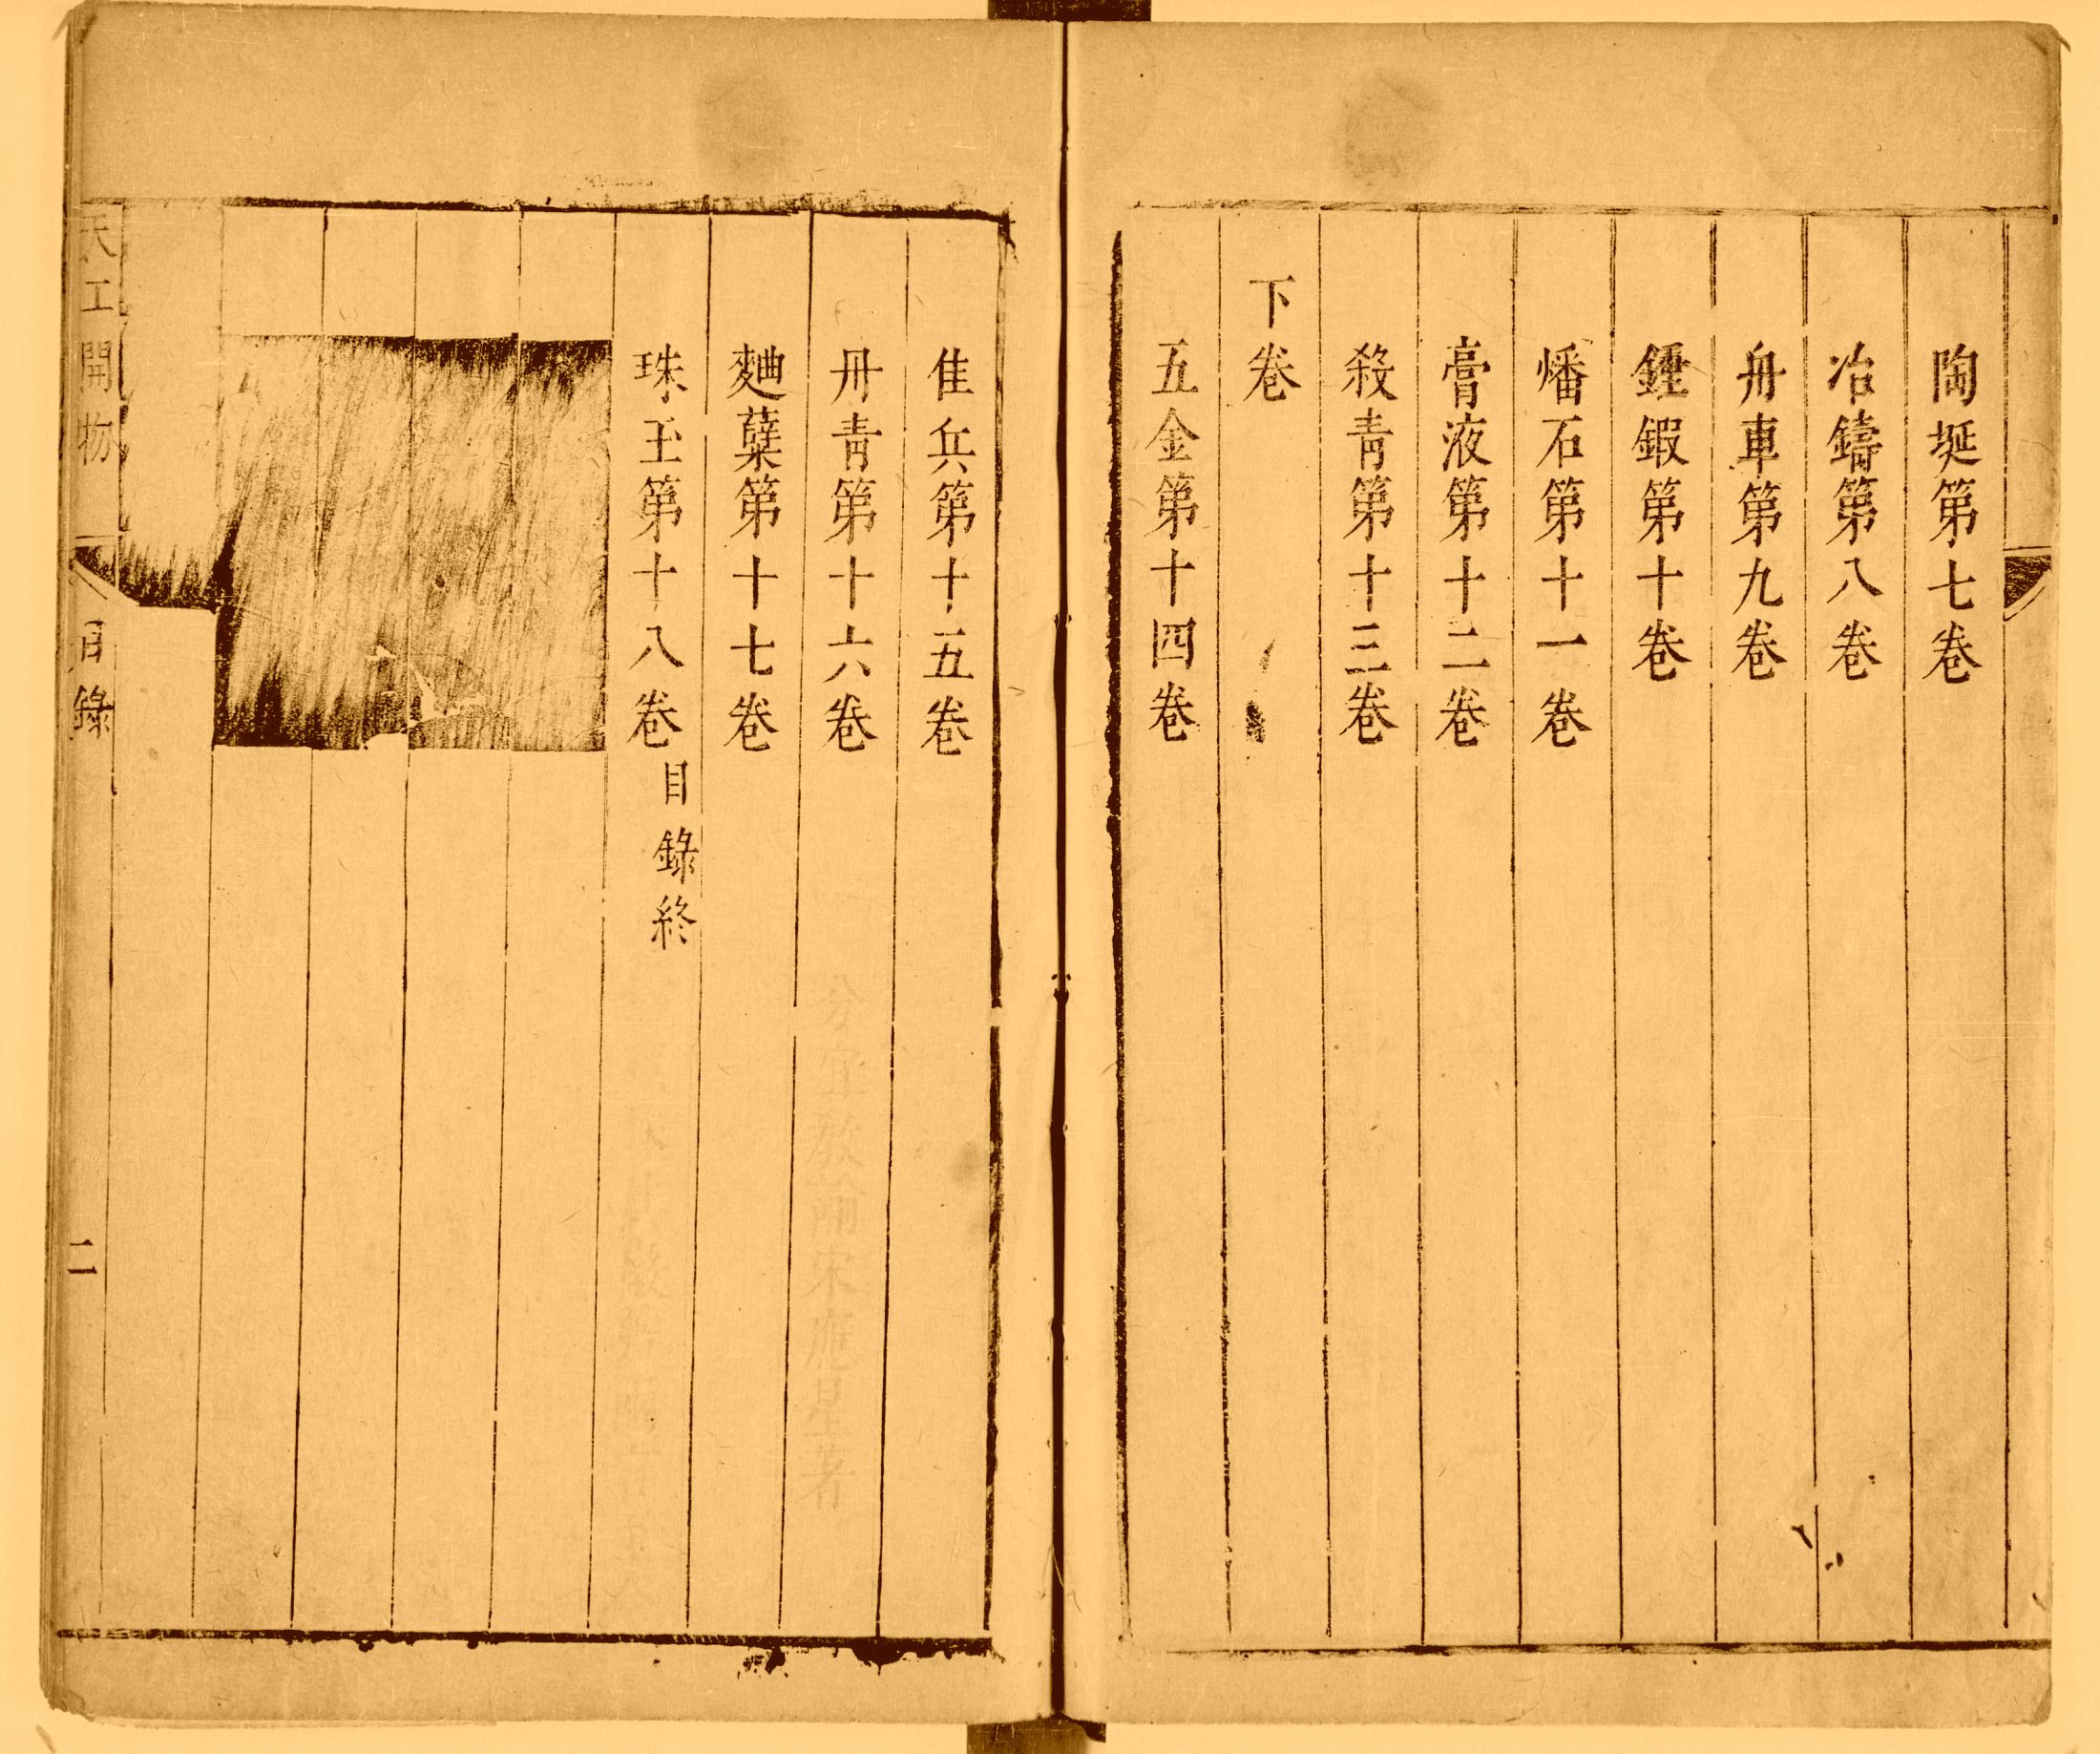 陶埏第七卷
冶鑄第八卷
舟車第九卷
錘鍛第十卷
燔石第十一卷
膏液第十二卷
殺青第十三卷
下卷
五金第十四卷
佳兵第十五卷
丹青第十六卷
麯糵第十七卷
珠玉第十八卷 目錄終
天工開物 目錄 二
分宜教諭宋應星著